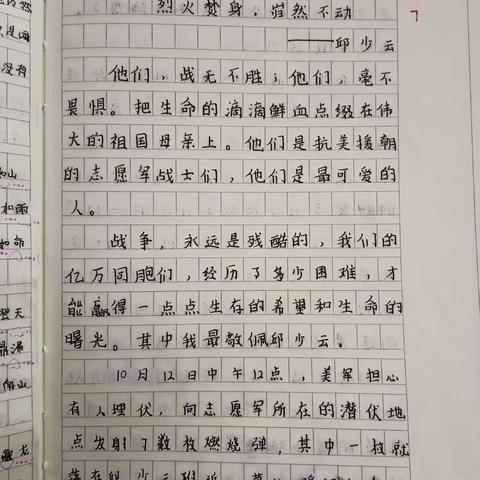 烈火焚身，岿然不动
——邱少云
他们，战无不胜；他们，毫不
畏惧。把生命的滴滴鲜血点缀在伟
大的祖国母亲上。他们是抗美援朝
的志愿军战士们，他们是最可爱的
人。
战争，永远是残酷的，我们的
亿万同胞们，经历了多少困难，才
能赢得一点点生存的希望和生命的
曙光。其中我最敬佩邱少云。
10月12日中午12点，美军担心
有人埋伏，向志愿军所在的潜伏地
点发射了数枚燃烧弹，其中一枚就
落在邱少云附近
没有
如雨
如命
登天
南山
7